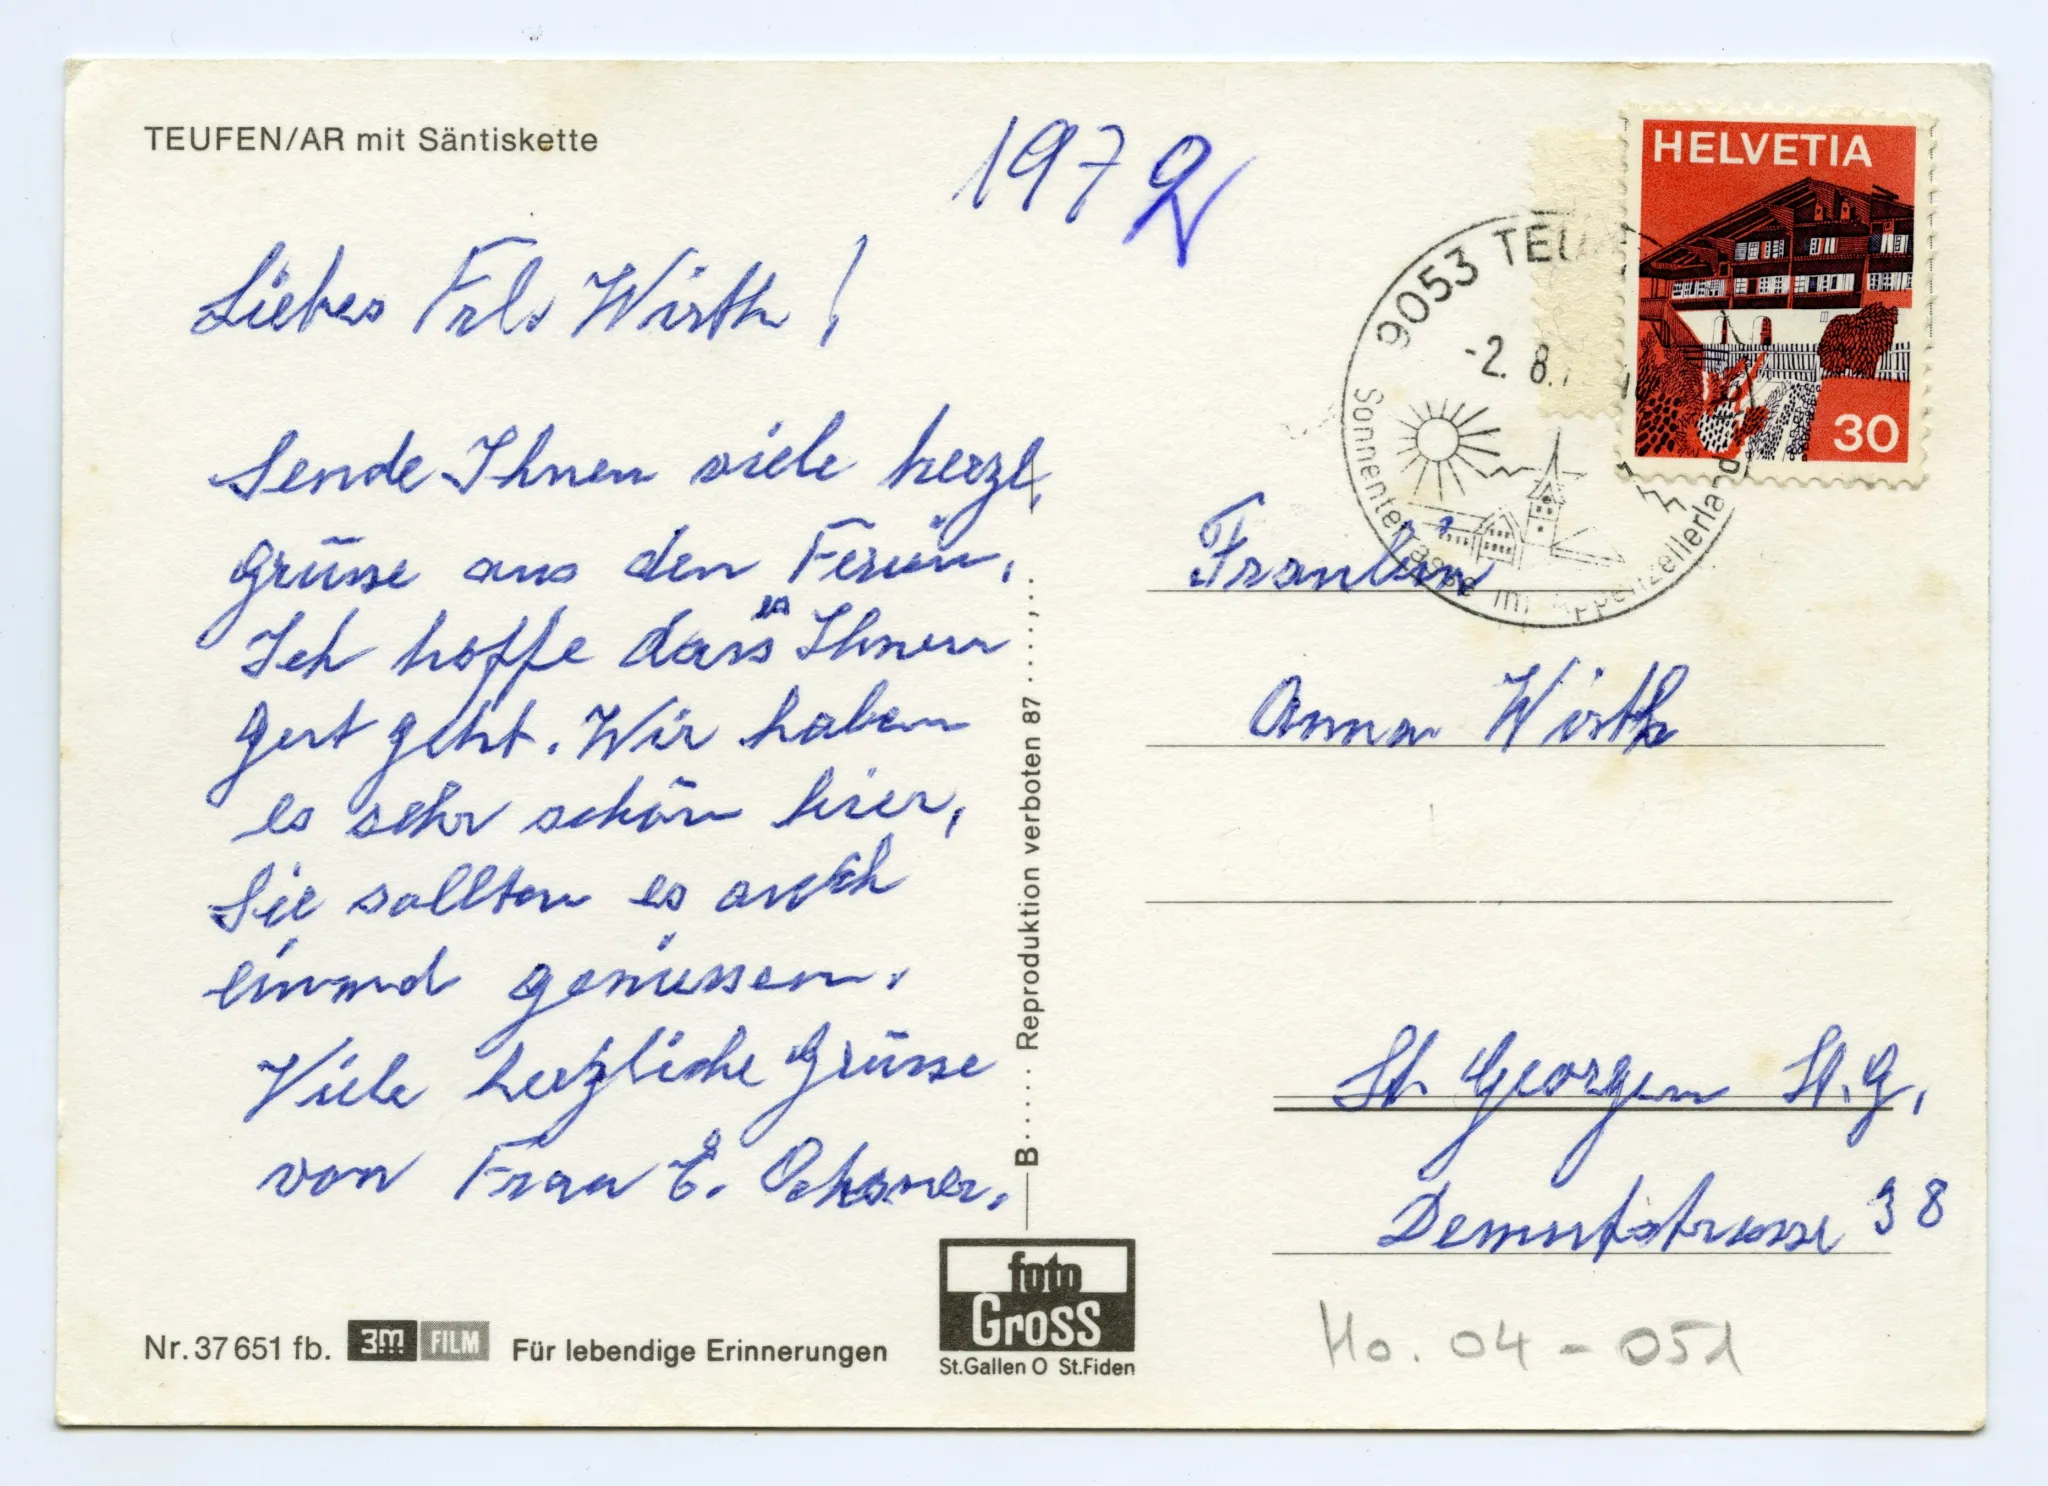 TEUFEN/AR mit Säntiskette
1972
Liebes Frl. Wirth!
Sende Ihnen viele herzl.
Grüsse aus den Ferien.
Ich hoffe dass es Ihnen
gut geht. Wir haben
es sehr schön hier,
Sie sollten es auch
einmal geniessen.
Viele herzliche Grüsse
von Frau E. Ochsner.
Nr. 37651 fb. 3M FILM Für lebendige Erinnerungen
B..... Reproduktion verboten 87.....,..
foto
Gross
St.Gallen O St.Fiden
HELVETIA
30
9053 TEU
-2. 8.
Sonnenterrasse im Appenzellerland
Fräulein
Anna Wirth
St. Georgen St. G.
Demutstrasse 38
Ho. 04-051